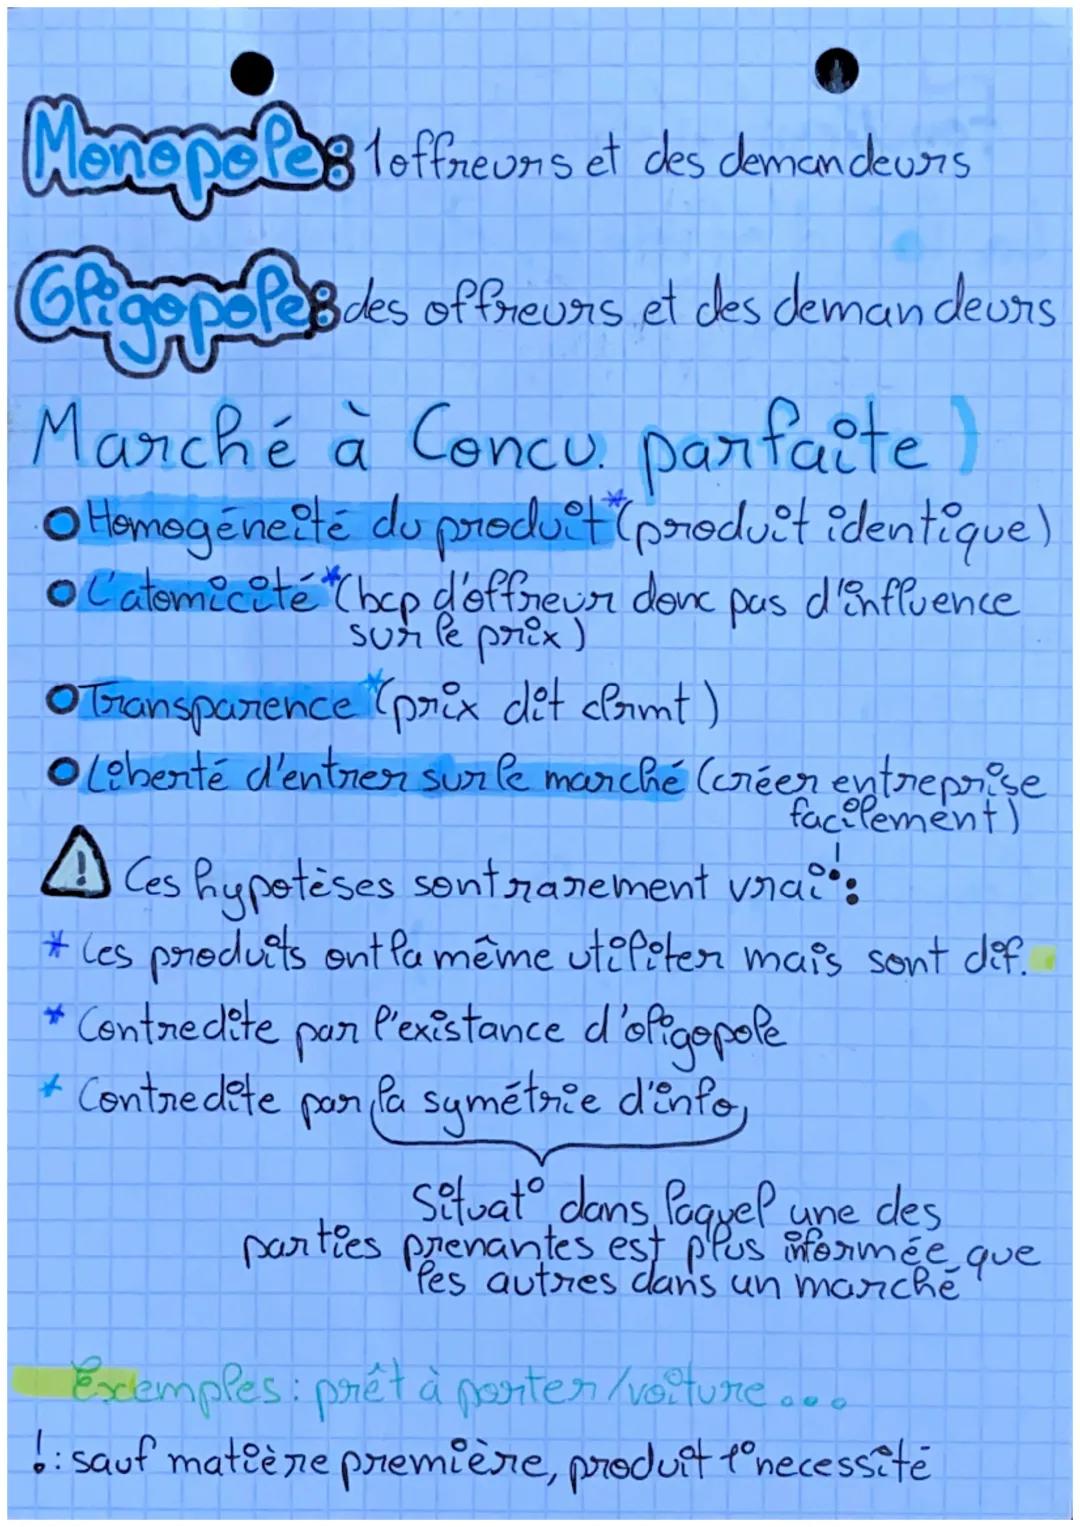 Monopole: 1 offreurs et des demandeurs
Oligopole: des offreurs et des demandeurs
Marché à Concu. parfaite)
Homogéneité du produit* (produit identique)
L'atomicité* (bcp d'offreur donc pas d'influence
sur le prix)
Transparence* (prix dit clrmt)
Liberté d'entrer sur le marché (créer entreprise
facilement)
⚠ Ces hypotèses sont rarement vrai!:
* Les produits ont la même utiliter mais sont dif.
* Contredite par l'existance d'oligopole
* Contredite par la symétrie d'info
Situat° dans laquel une des
parties prenantes est plus informée que
les autres dans un marché
Exemples: prêt à porter/voiture...
!: sauf matière première, produit 1° necessité